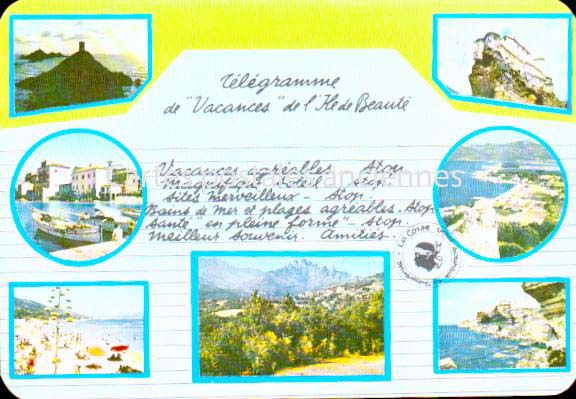 Télégramme
de "Vacances" de l'Ile de Beauté
Vacances agréables - Stop.
Magnifique Soleil - Stop.
Sites merveilleux - Stop.
Bains de mer et plages agréables. Stop
Santé "en pleine forme". Stop.
Meilleur souvenir. Amitiés.
La Corse